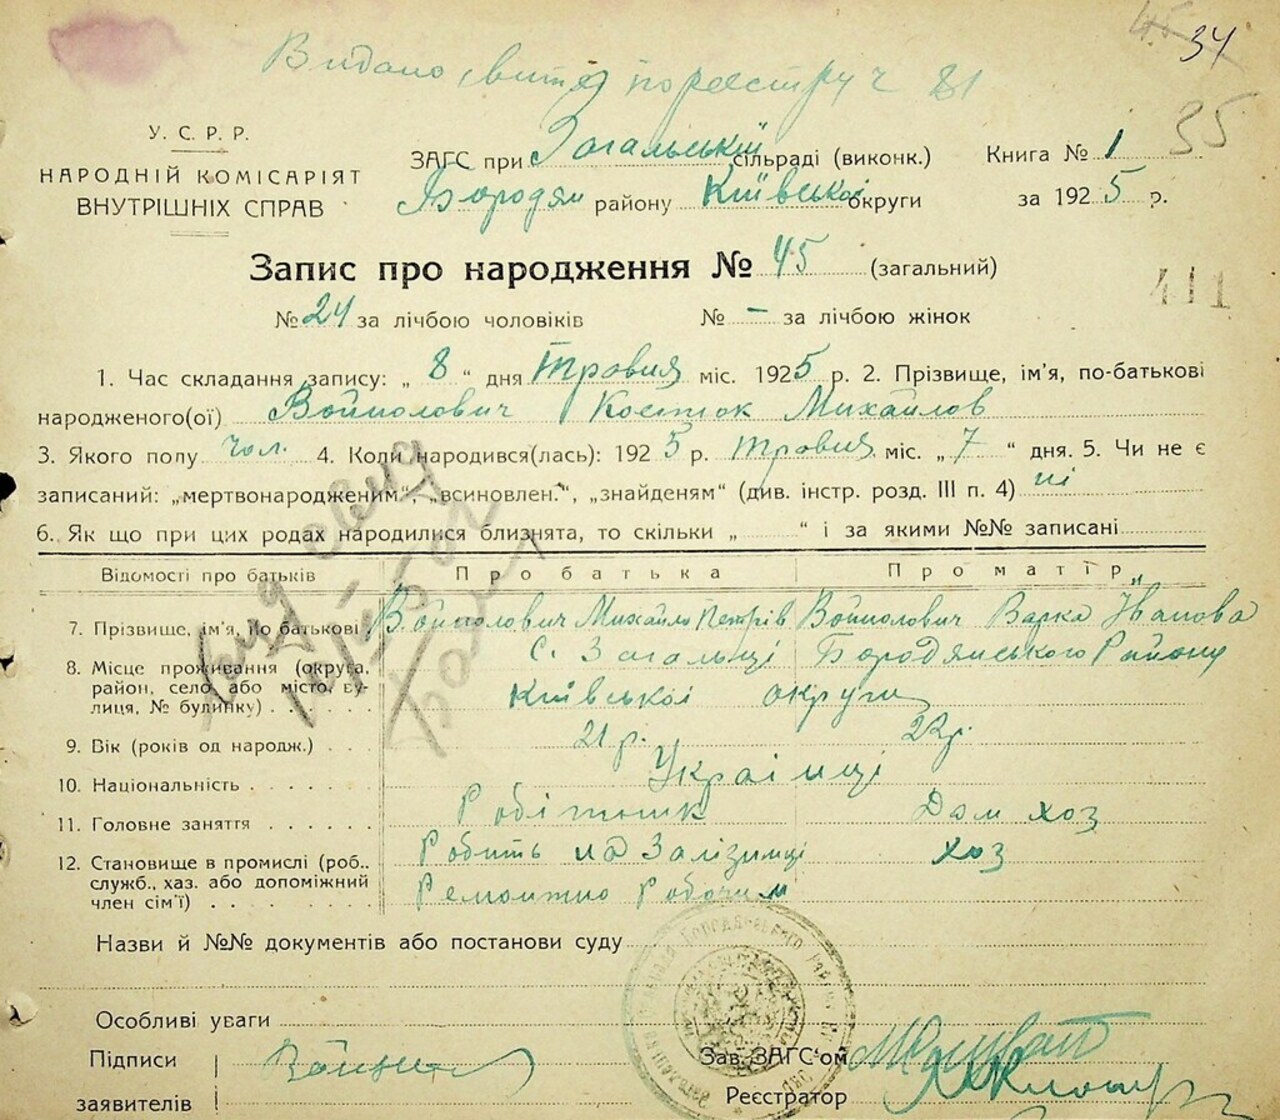 45 34
Видано свитод по реєстру ч 81
35
У. С. Р. Р.
НАРОДНІЙ КОМІСАРІЯТ
ВНУТРІШНІХ СПРАВ
ЗАГС при Загальській сільраді (виконк.) Книга № 1
Бородян району Київської округи за 1925 р.
Запис про народження № 45 (загальний)
411
№ 24 за лічбою чоловіків № – за лічбою жінок
1. Час складання запису: „ 8 “ дня Травня міс. 1925 р. 2. Прізвище, ім'я, по-батькові
народженого(ої) Войнолович Косток Михайлов
3. Якого полу чол. 4. Коли народився(лась): 1925 р. травня міс. „ 7 “ дня. 5. Чи не є
записаний: „мертвонародженим“, „всиновлен.“, „знайденям“ (див. інстр. розд. III п. 4) ні
6. Як що при цих родах народилися близнята, то скільки „ “ і за якими №№ записані
Відомості про батьків Про батька Про матір
7. Прізвище, ім'я, по батькові Войнолович Михайль Петрів Войнолович Варка Іванова
8. Місце проживання (округа, с. Загальці Бородянського Району
район, село або місто, ву-
лиця, № будинку) Київської округи
9. Вік (років од народж.) 21 р. 22 р.
10. Національність Украінці
11. Головне заняття Робітник Дом хоз
12. Становище в промислі (роб., Робить на Залізниці хоз
служб., хаз. або допоміжний
член сім'ї) Ремонтно Робочим
Назви й №№ документів або постанови суду
Особливі уваги
Підписи
заявителів
Зав. ЗАГС'ом
Реєстратор